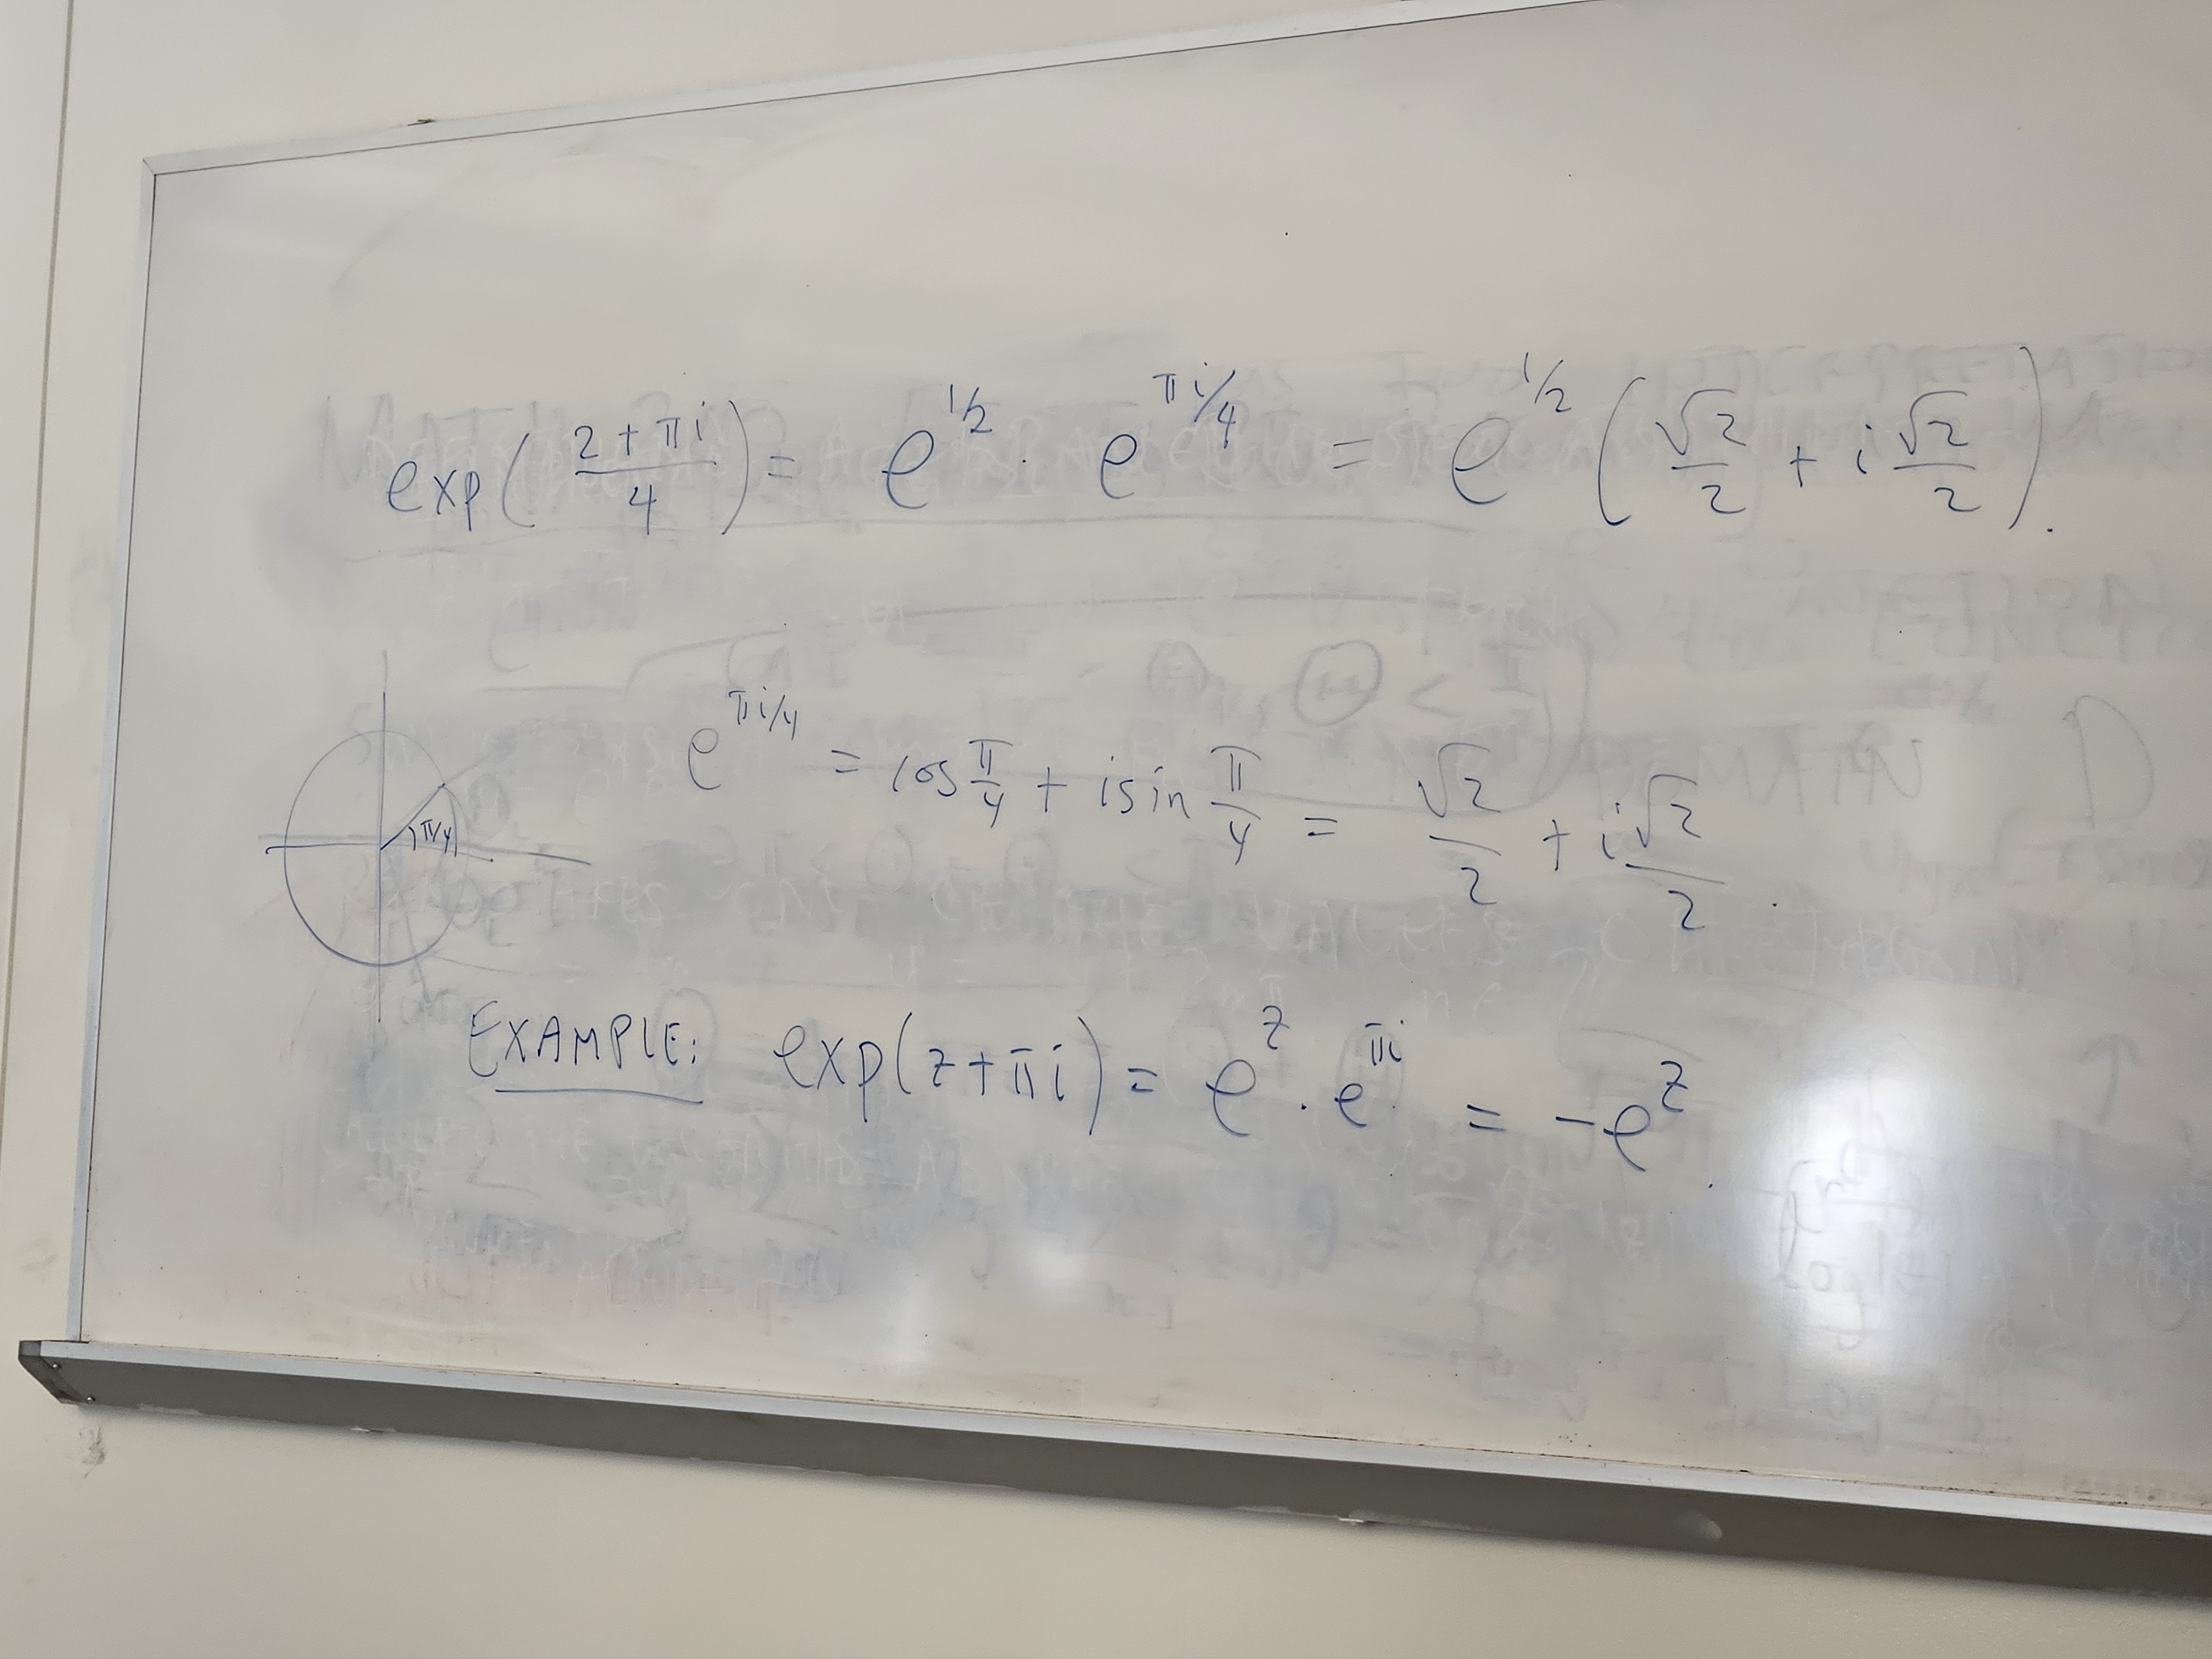 exp((2+πi)/4) = e^(1/2) · e^(πi/4) = e^(1/2) (√2/2 + i √2/2).
e^(πi/4) = cos π/4 + i sin π/4 = √2/2 + i √2/2.
π/4
EXAMPLE: exp(z+πi) = e^z · e^(πi) = -e^z.